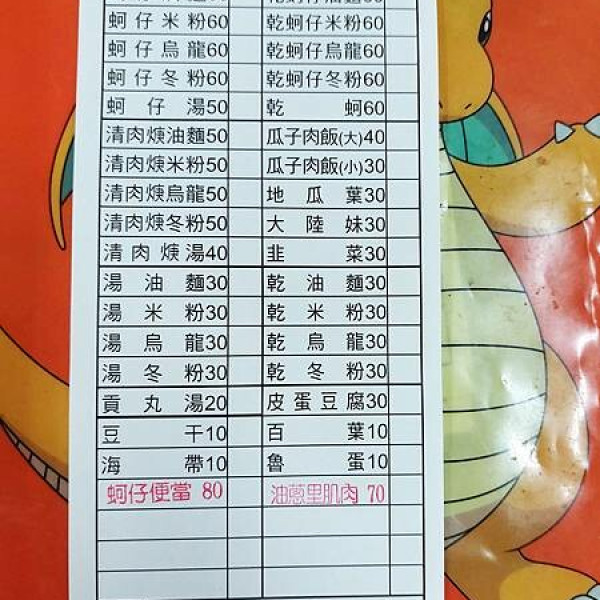 蚵仔米粉60 乾蚵仔米粉60
蚵仔烏龍60 乾蚵仔烏龍60
蚵仔冬粉60 乾蚵仔冬粉60
蚵仔湯50 乾蚵60
清肉焿油麵50 瓜子肉飯(大)40
清肉焿米粉50 瓜子肉飯(小)30
清肉焿烏龍50 地瓜葉30
清肉焿冬粉50 大陸妹30
清肉焿湯40 韭菜30
湯油麵30 乾油麵30
湯米粉30 乾米粉30
湯烏龍30 乾烏龍30
湯冬粉30 乾冬粉30
貢丸湯20 皮蛋豆腐30
豆干10 百葉10
海帶10 魯蛋10
蚵仔便當 80 油蔥里肌肉 70